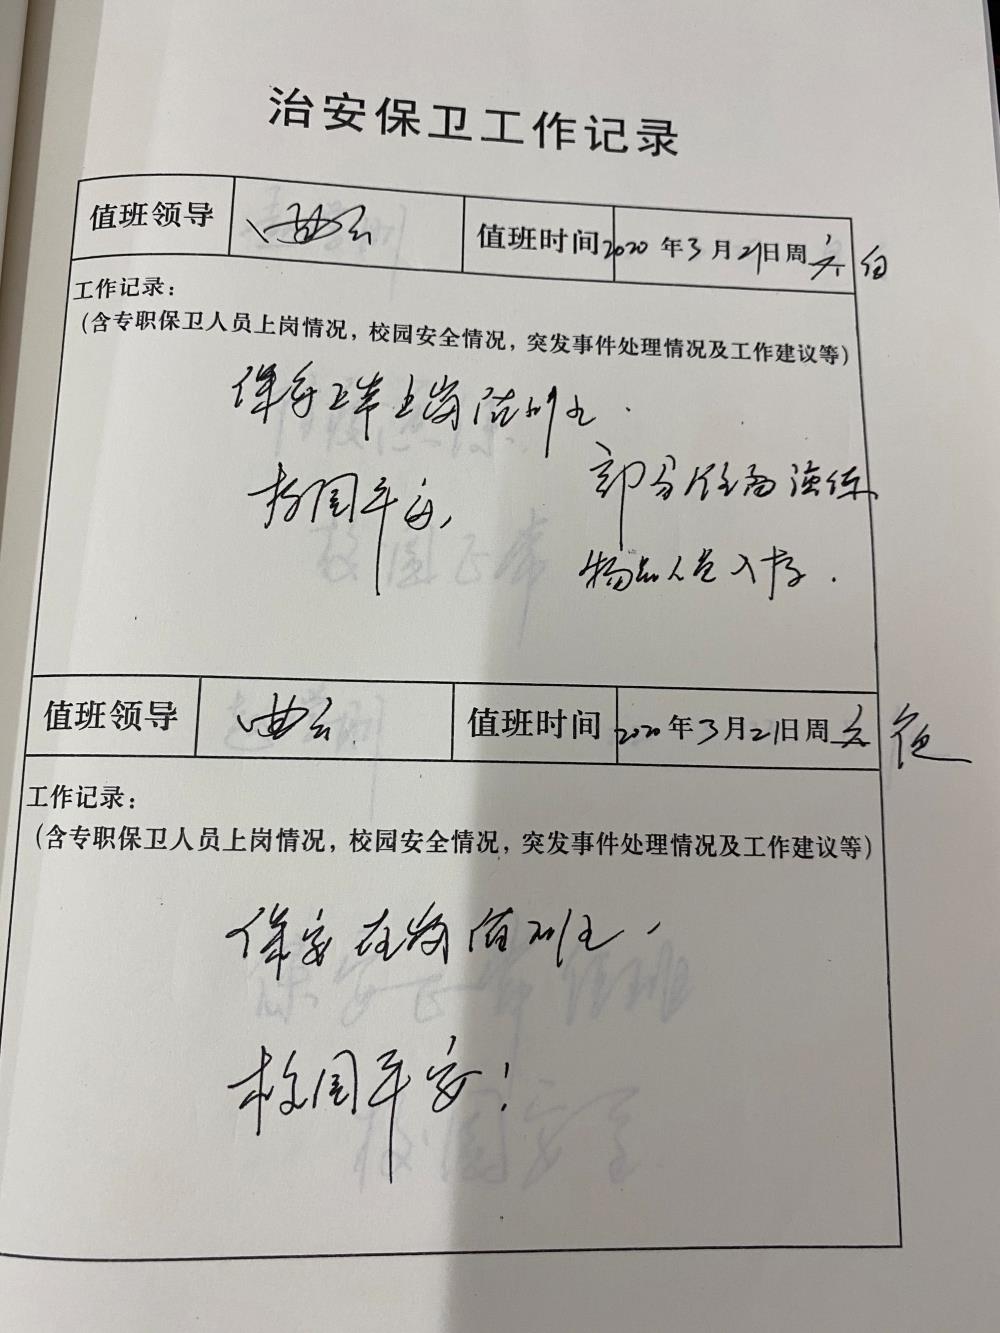 治安保卫工作记录
值班领导 曲云 值班时间 2020年3月21日周六 白
工作记录：
（含专职保卫人员上岗情况，校园安全情况，突发事件处理情况及工作建议等）
保安正常上岗值班
校园平安，
部分 演练
物品人员入校．
值班领导 曲云 值班时间 2020年3月21日周六 夜
工作记录：
（含专职保卫人员上岗情况，校园安全情况，突发事件处理情况及工作建议等）
保安在岗值班，
校园平安！